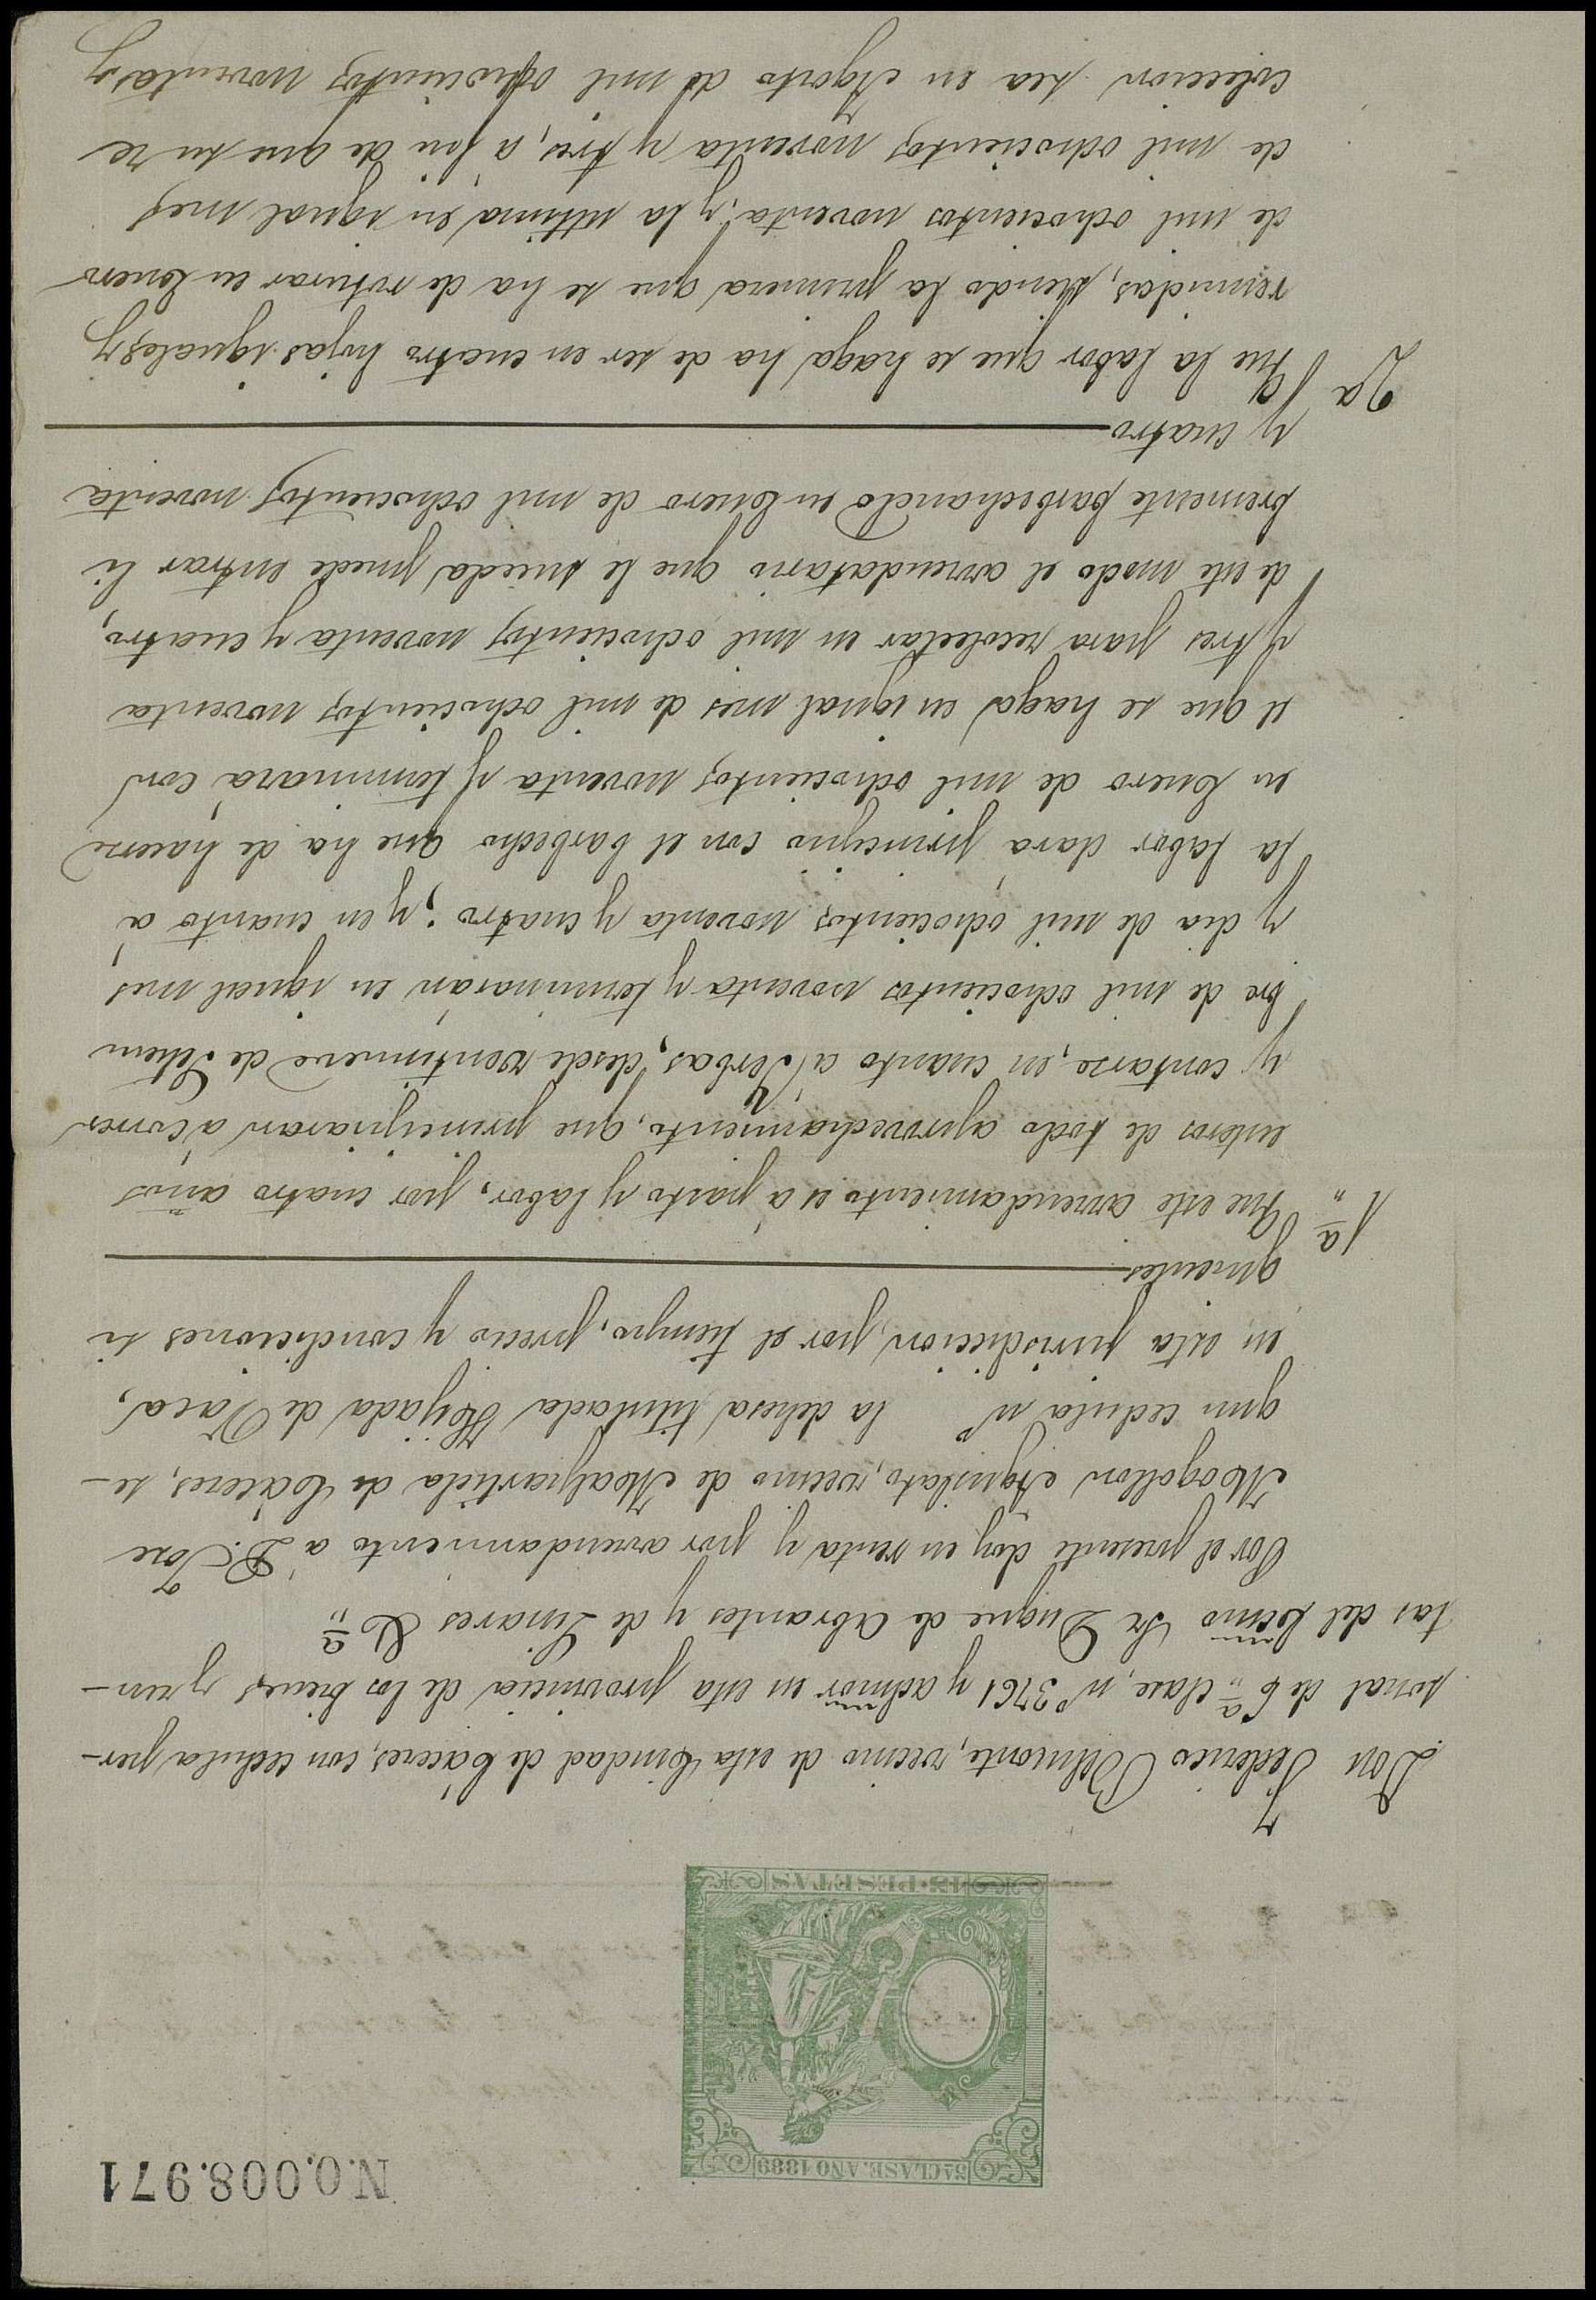 N.0.008.971
5ª CLASE. AÑO 1889
13·PESETAS
Don Federico Belmonte, vecino de esta Ciudad de Cáceres, con cedula per-
sonal de 6ª clase, nº 3761 y admor en esta provincia de los bienes y ren-
tas del Excmo Sr Duque de Abrantes y de Linares &ª
Por el presente doy en renta y por arrendamiento á D. Jose
Mogollon Aguilato, vecino de Malpartida de Cáceres, se-
gun cedula nº la dehesa titulada Hijada de Vaca,
en esta jurisdiccion, por el tiempo, precio y condiciones si
guientes
1ª Que este arrendamiento es á pasto y labor, por cuatro años
enteros de todo aprovechamiento, que principiaran á correr
y contarse, en cuanto á Yerbas, desde veintinueve de Setiem
bre de mil ochocientos noventa y terminarán en igual mes
y dia de mil ochocientos noventa y cuatro; y en cuanto á
la labor dará principio con el barbecho que ha de hacerse
en Enero de mil ochocientos noventa y terminará con
el que se haga en igual mes de mil ochocientos noventa
y tres para recolectar en mil ochocientos noventa y cuatro,
de este modo el arrendatario que le suceda puede entrar li
bremente barbechando en Enero de mil ochocientos noventa
y cuatro
2ª Que la labor que se haga ha de ser en cuatro hojas iguales y
reunidas, siendo la primera que se ha de roturar en Enero
de mil ochocientos noventa, y la ultima en igual mes
de mil ochocientos noventa y tres, á fin de que su re
coleccion sea en Agosto de mil ochocientos noventa y